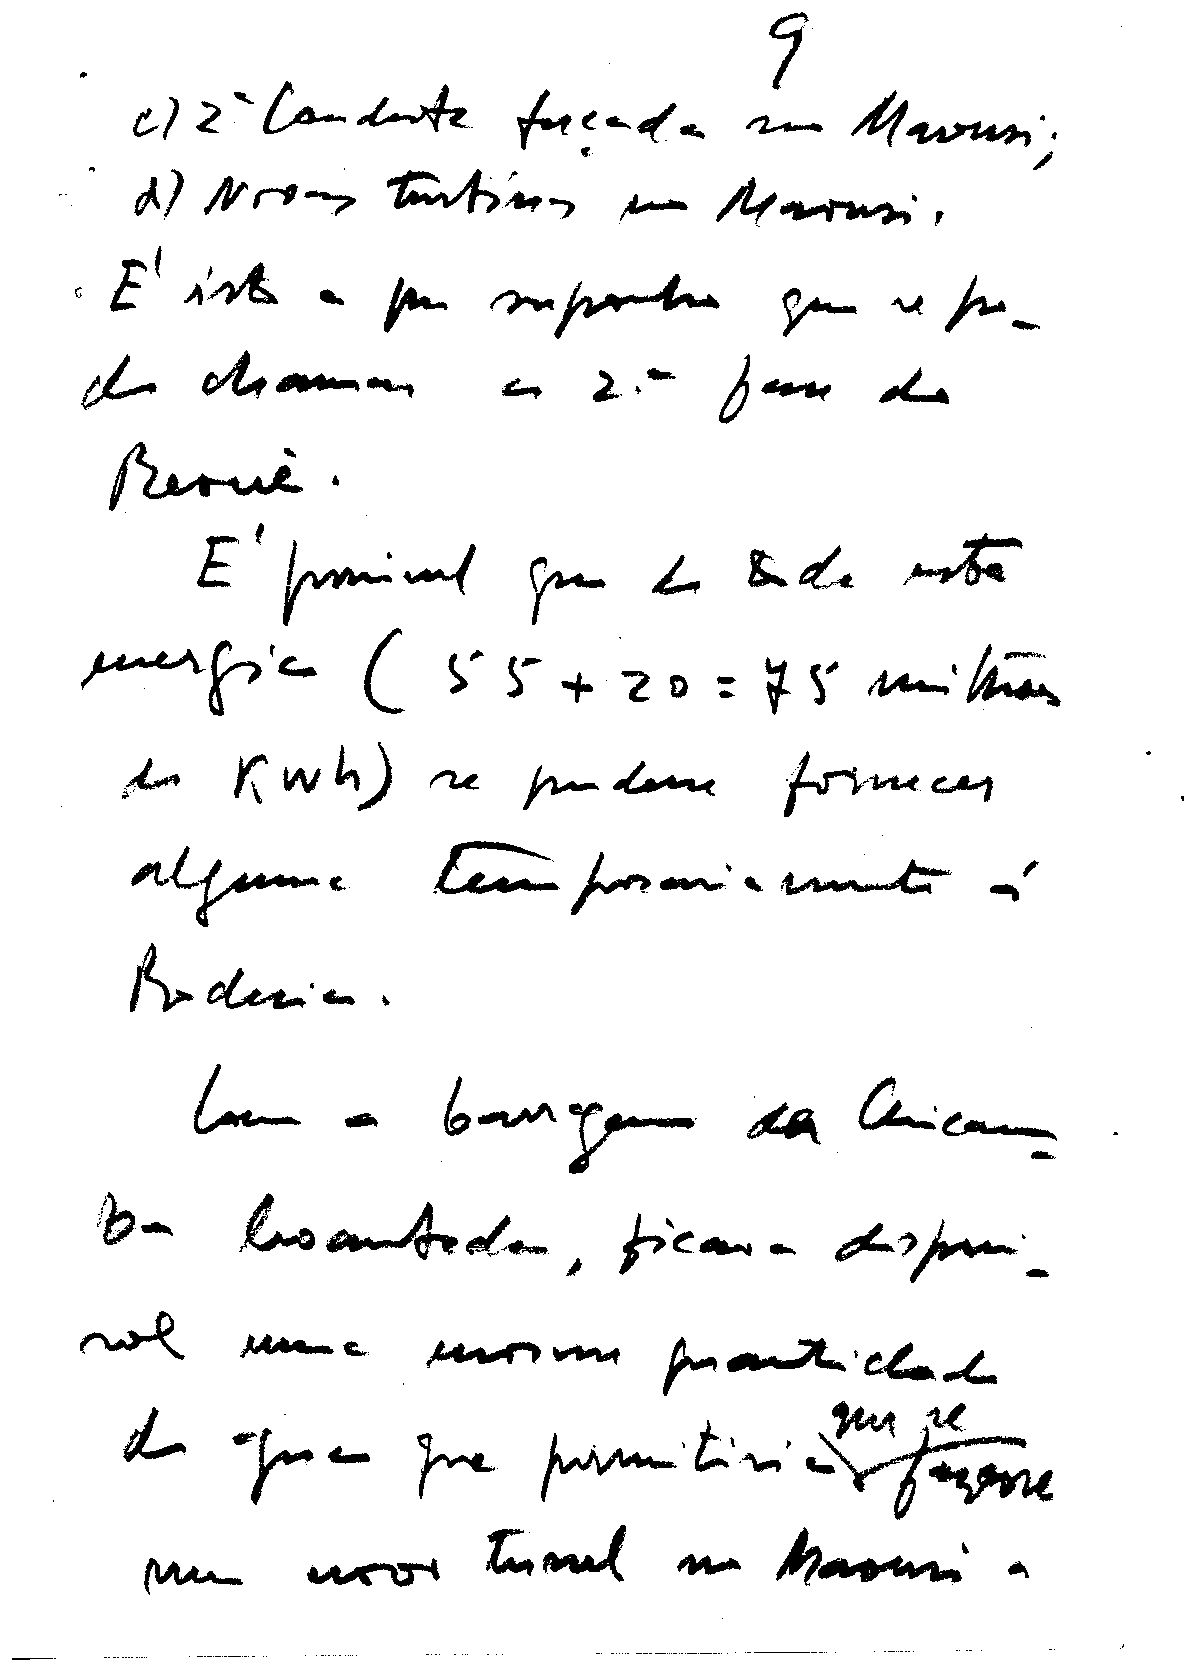 9
c) 2ª Conduta forçada no Mavuzi;
d) Novas turbinas no Mavuzi.
E' isto a que suponho que se po-
de chamar a 2.ª fase do
Revuè.
E' possivel que de toda esta
energia (55 + 20 = 75 milhões
de KWh) se pudesse fornecer
alguma temporariamente á
Rodesia.
Com a barragem da Chicam-
ba levantada, ficava dispni-
vel uma enorme quantidade
de agua que permitiria que se fizesse
um novo tunel no Mavuzi a